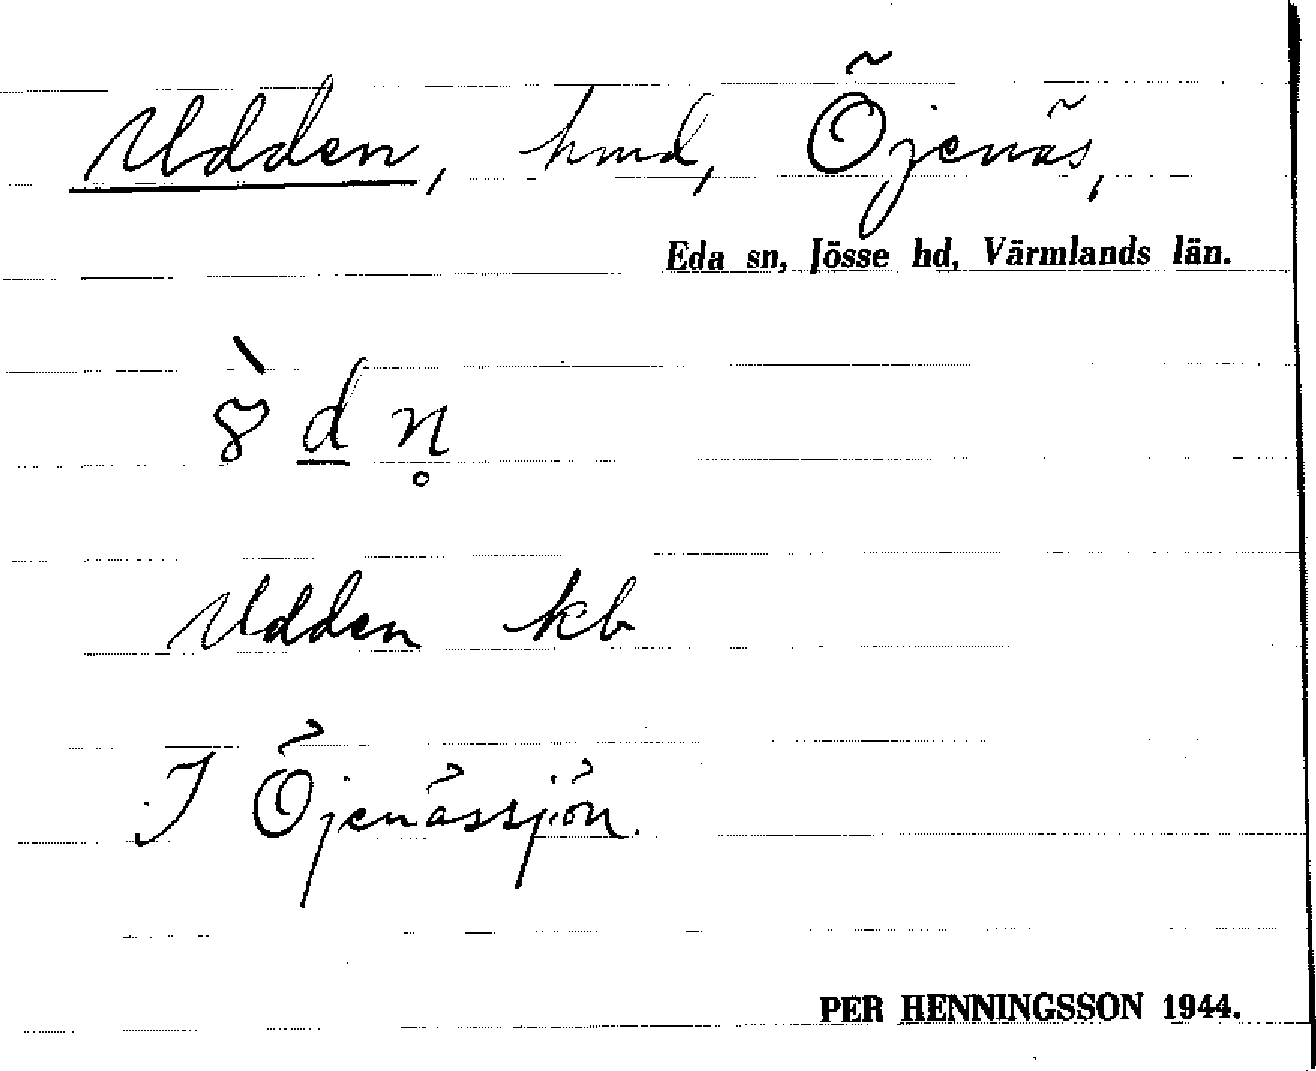 Udden, hmd, Öjenäs,
Eda sn, Jösse hd, Värmlands län.
Udden kb
I Öjenässjön.
PER HENNINGSSON 1944.